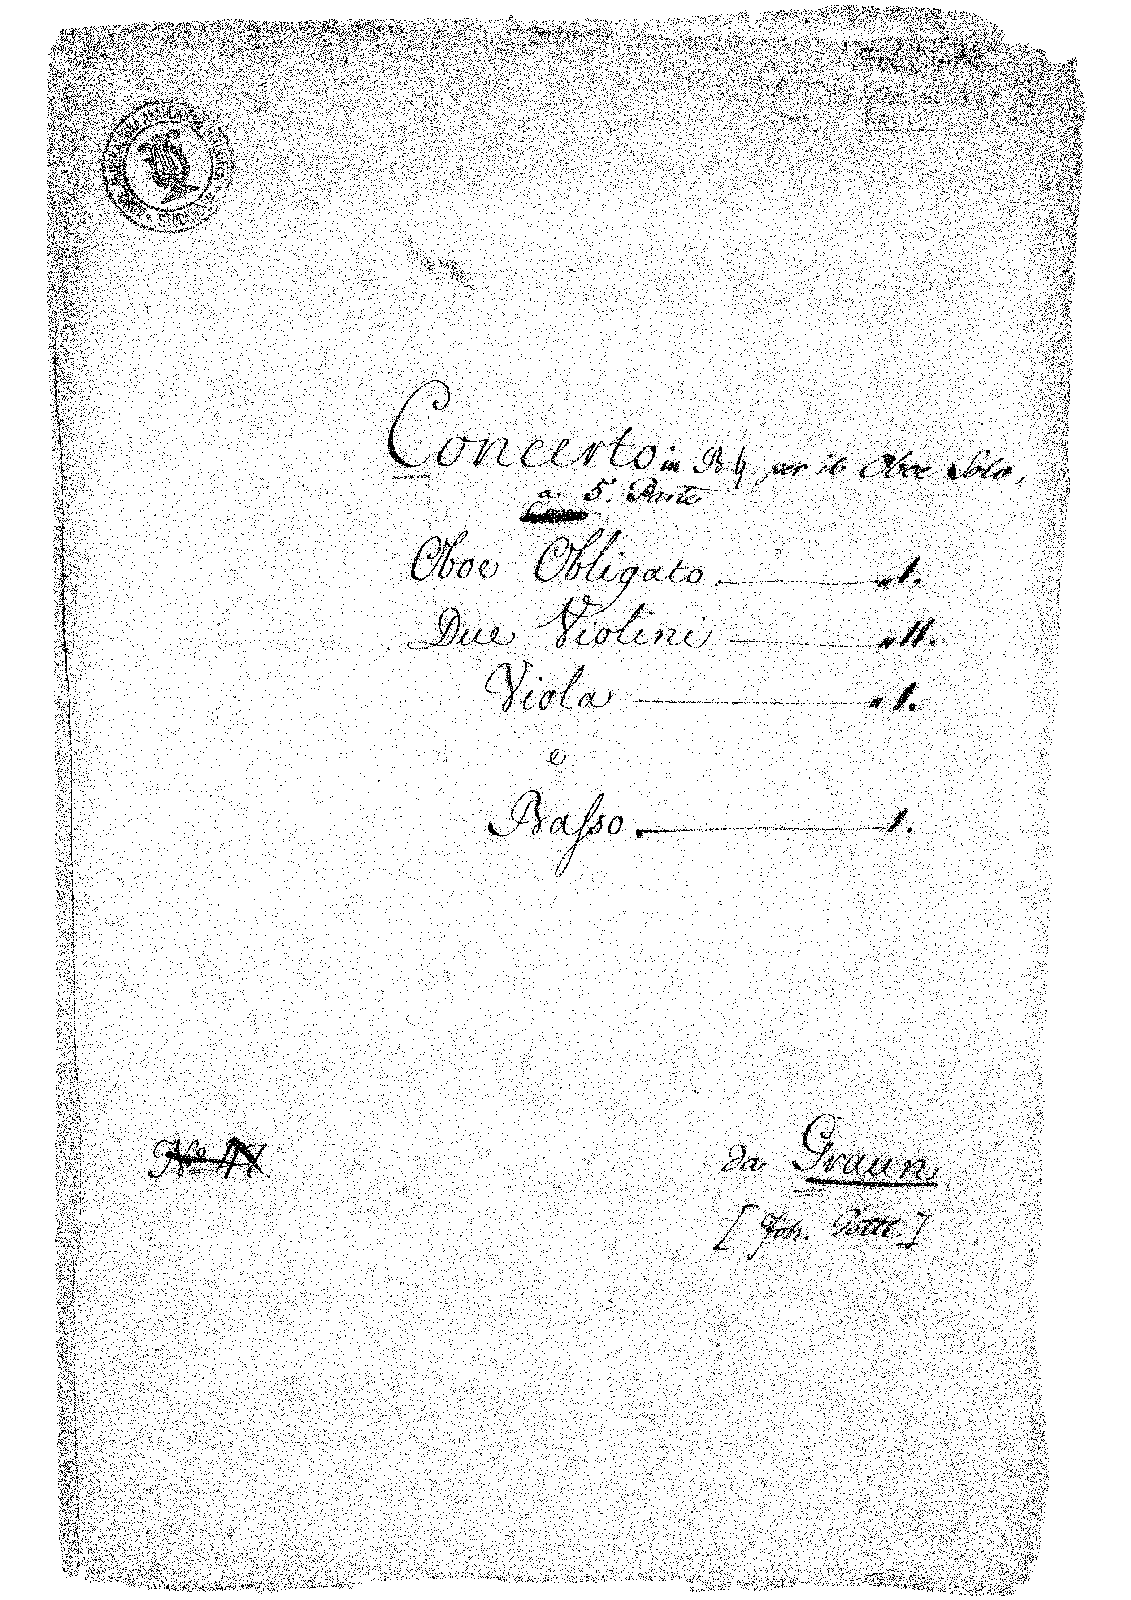 Concerto in B♮ per il Oboe Solo,
a. 5. Parte
Oboe Obligato. — 1.
Due Violini — 11.
Viola — 1.
e
Basso. — 1.
No
da Graun.
[Joh. Gottl.]